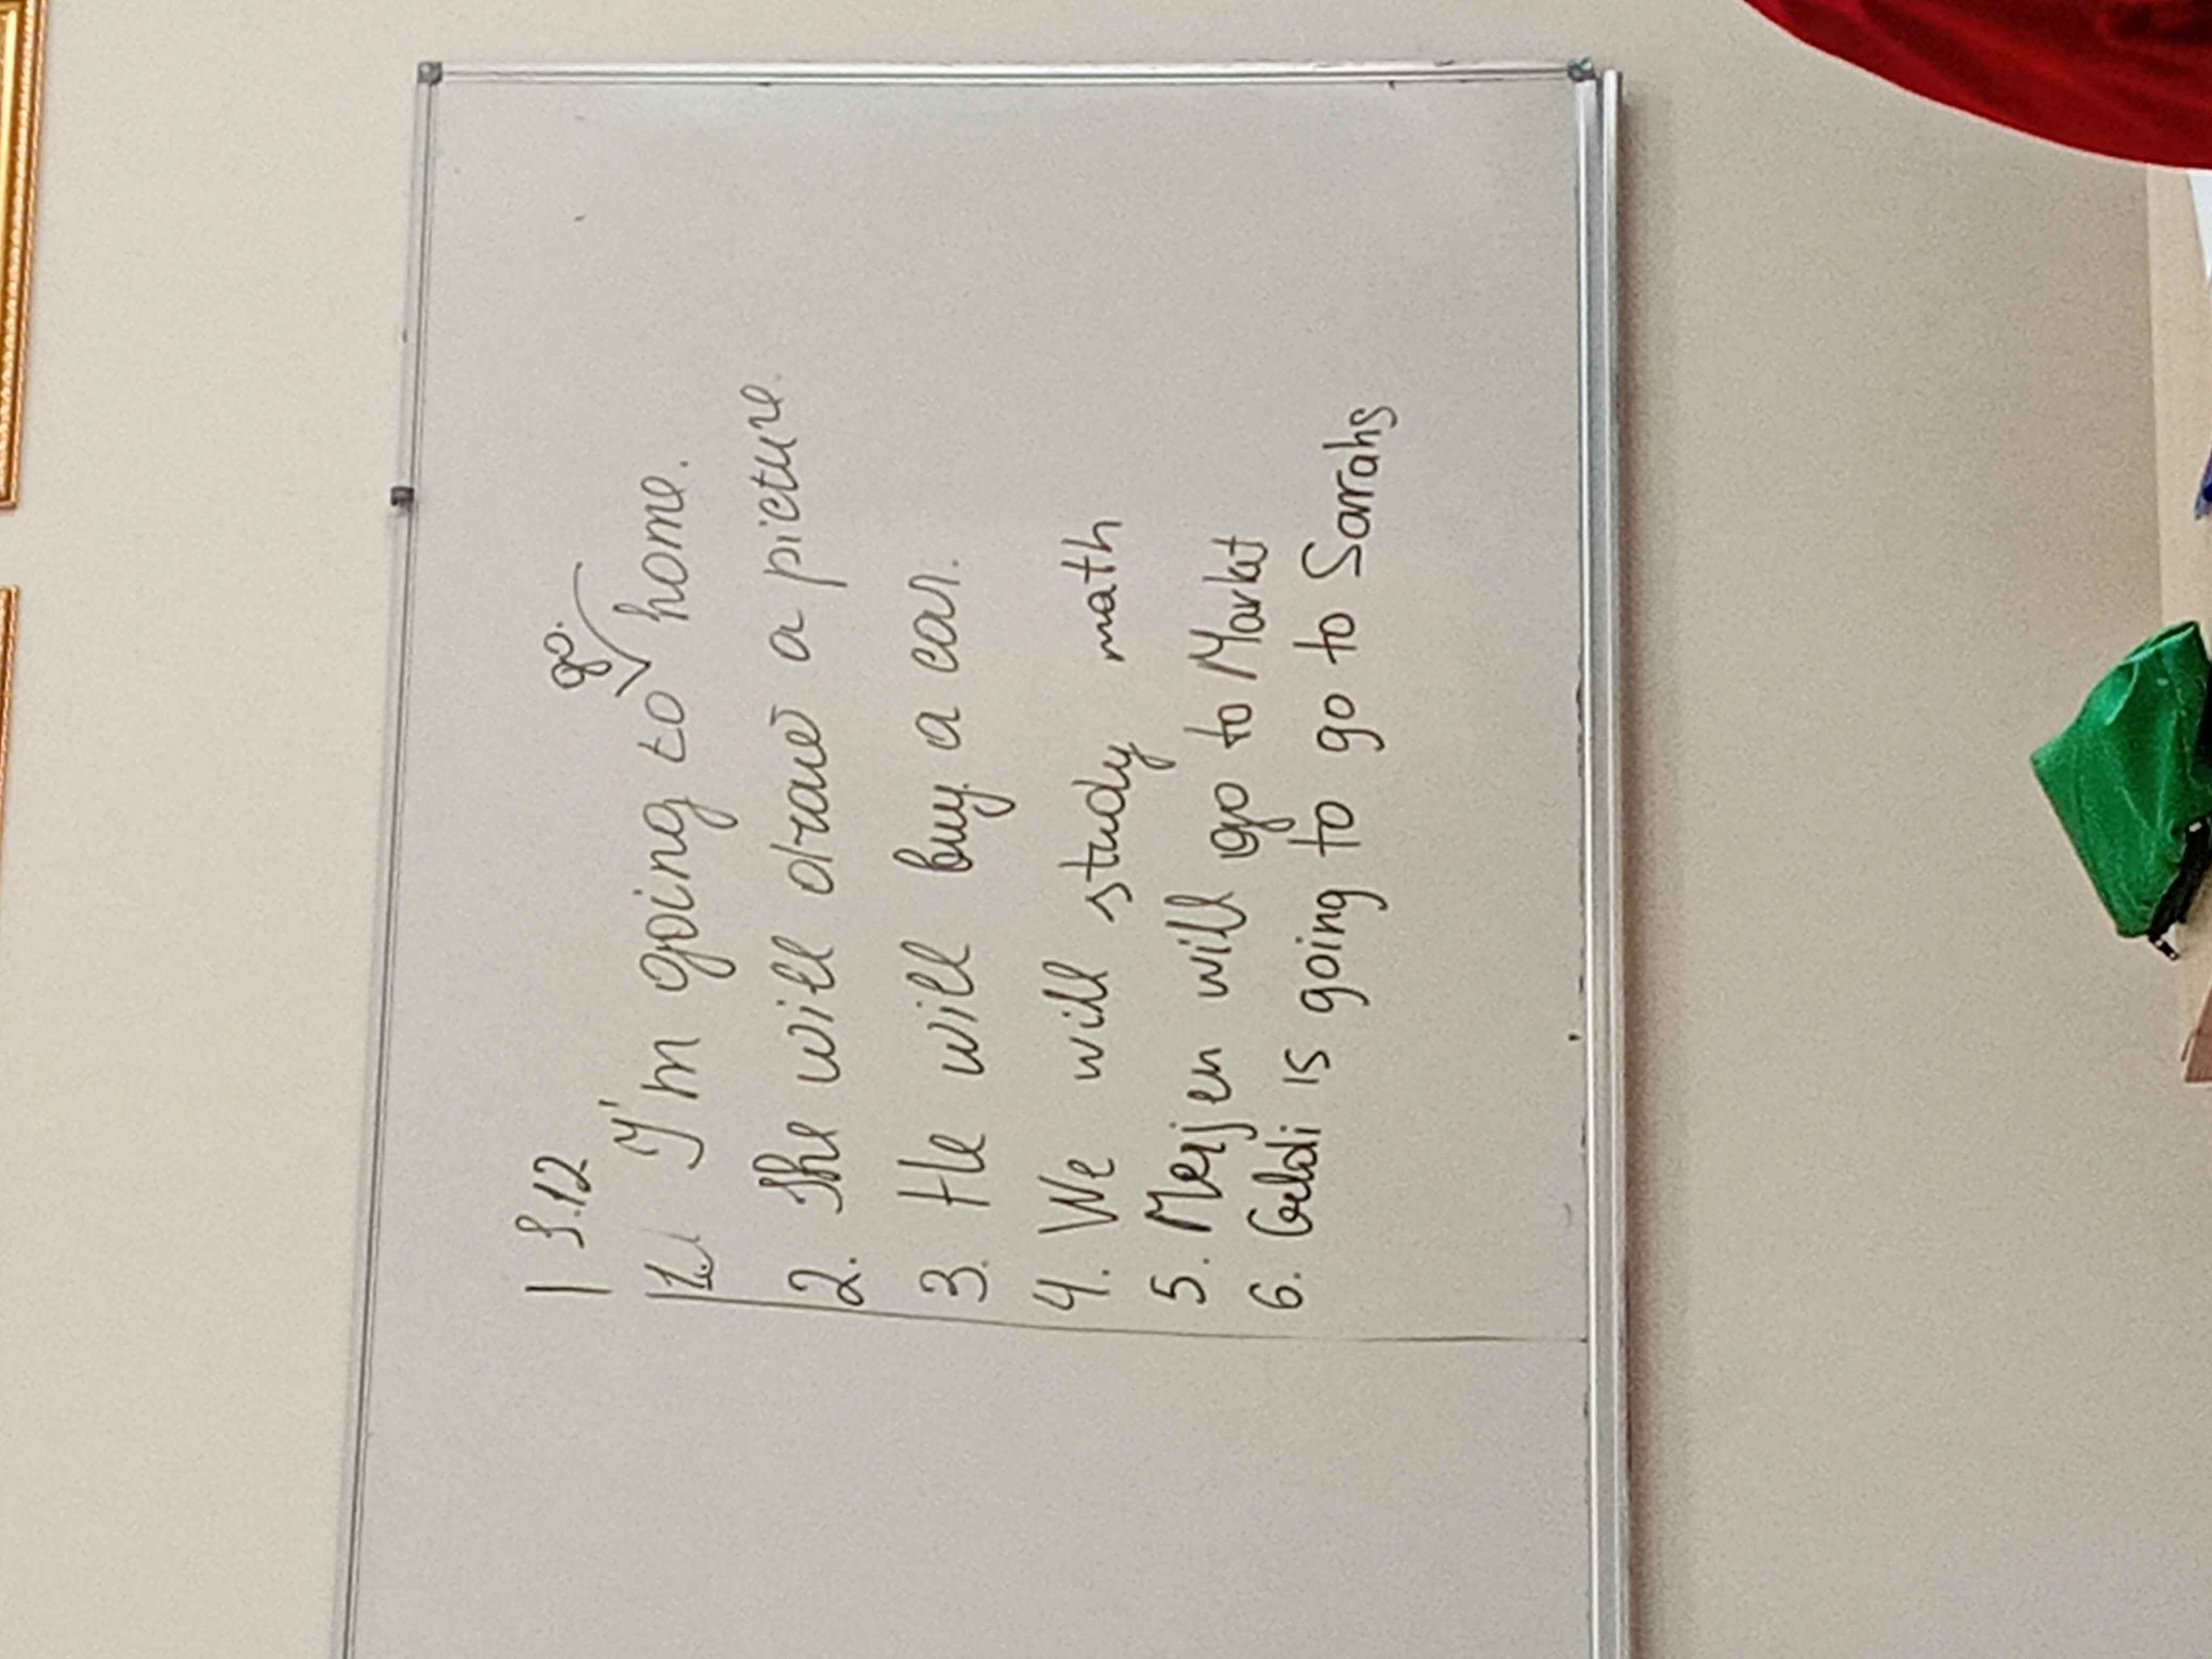 S.12
go.
1. I'm going to home.
2. She will draw a picture.
3. He will buy a car.
4. We will study math
5. Merjen will go to Market
6. Geldi is going to go to Sarahs